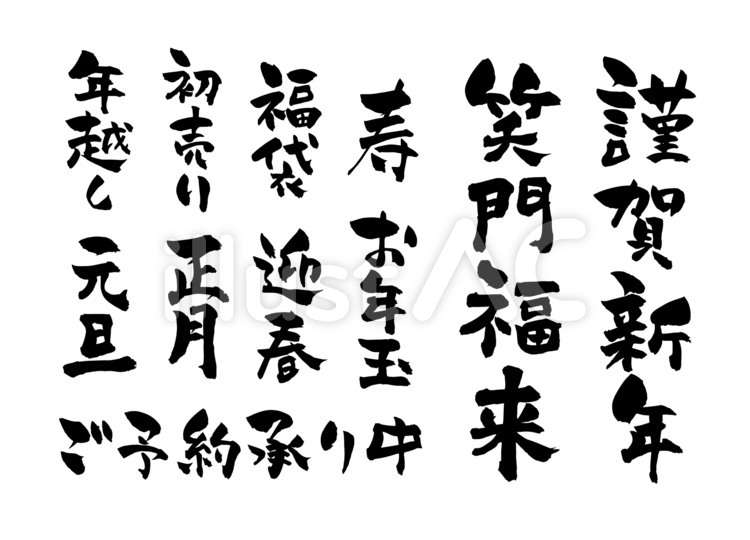 謹賀新年
笑門福来
寿
お年玉
福袋
迎春
初売り
正月
年越し
元旦
ご予約承り中
illustAC